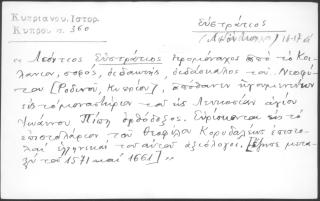 Κυπριανου, Ιστορ.
Κυπρου σ. 360
Εὐστράτιος
16-17 αι
« Λεόντιος Εὐστράτιος ἱερομόναχος ἀπὸ τὸ Κοι-
λάνιον, σοφός, διδακτής, διδάσκαλος τοῦ Νεοφύ-
του [Ροδινοῦ, Κυπρίου], ἀπέθανεν ἡγουμενεύων
εἰς τὸ μοναστήριον τοῦ εἰς Λευκωσίαν ἁγίου
Ἰωάννου Πίπη ὀρθόδοξος. Εὑρίσκονται εἰς τὸ
ἐπιστολάριον τοῦ Θεοφίλου Κορυδαλέως ἐπιστο-
λαὶ ἑλληνικαὶ τοῦ αὐτοῦ ἀξιόλογοι. [ἔζησε μετα-
ξὺ τοῦ 1571 καὶ 1661] »